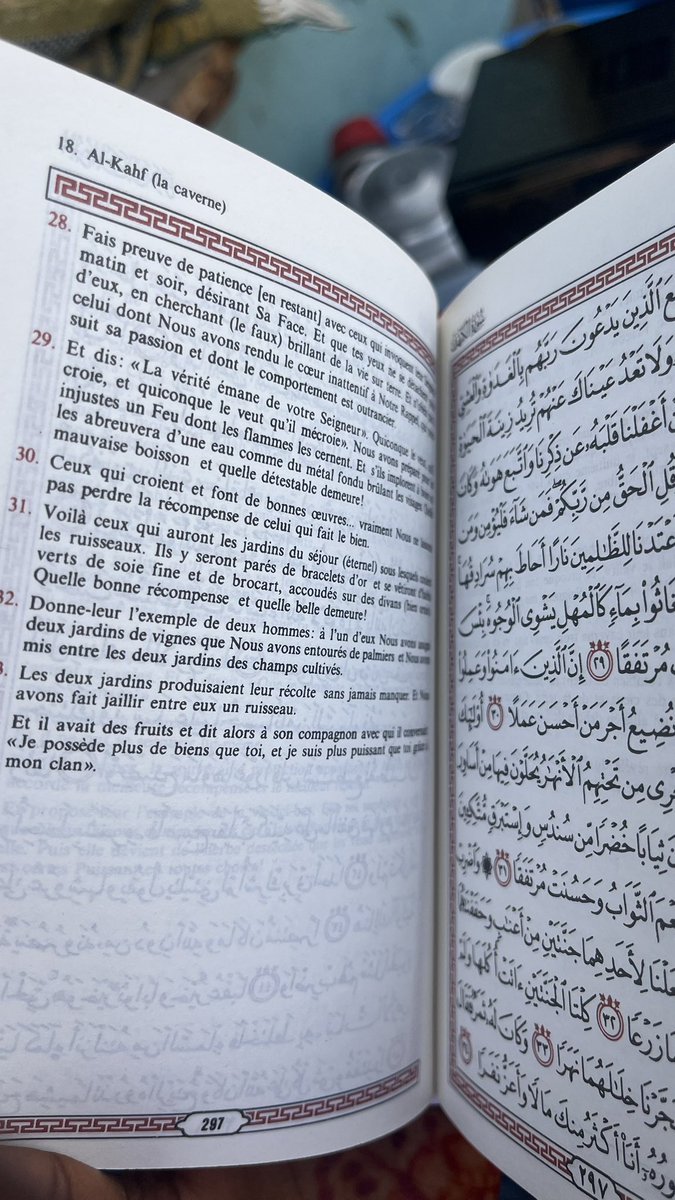 18. Al-Kahf (la caverne)
28. Fais preuve de patience [en restant] avec ceux qui invoquent leur
matin et soir, désirant Sa Face. Et que tes yeux ne se détachent
d'eux, en cherchant (le faux) brillant de la vie sur terre. Et n'obéis
celui dont Nous avons rendu le cœur inattentif à Notre Rappel, qui
suit sa passion et dont le comportement est outrancier.
29. Et dis: «La vérité émane de votre Seigneur». Quiconque le veut,
croie, et quiconque le veut qu'il mécroie». Nous avons préparé pour
injustes un Feu dont les flammes les cernent. Et s'ils implorent à
les abreuvera d'une eau comme du métal fondu brûlant les visages
mauvaise boisson et quelle détestable demeure!
30. Ceux qui croient et font de bonnes œuvres... vraiment Nous ne laissons
pas perdre la récompense de celui qui fait le bien.
31. Voilà ceux qui auront les jardins du séjour (éternel) sous lesquels
les ruisseaux. Ils y seront parés de bracelets d'or et se vêtiront
verts de soie fine et de brocart, accoudés sur des divans (bien
Quelle bonne récompense et quelle belle demeure!
32. Donne-leur l'exemple de deux hommes: à l'un d'eux Nous avons
deux jardins de vignes que Nous avons entourés de palmiers et Nous avons
mis entre les deux jardins des champs cultivés.
Les deux jardins produisaient leur récolte sans jamais manquer. Et Nous
avons fait jaillir entre eux un ruisseau.
Et il avait des fruits et dit alors à son compagnon avec qui il conversait
«Je possède plus de biens que toi, et je suis plus puissant que toi grâce à
mon clan».
297
ٱلَّذِينَ يَدْعُونَ رَبَّهُم بِٱلْغَدَوٰةِ وَٱلْعَشِيِّ
وَلَا تَعْدُ عَيْنَاكَ عَنْهُمْ تُرِيدُ زِينَةَ ٱلْحَيَوٰةِ
أَغْفَلْنَا قَلْبَهُۥ عَن ذِكْرِنَا وَٱتَّبَعَ هَوَىٰهُ وَكَانَ
قُلِ ٱلْحَقُّ مِن رَّبِّكُمْ فَمَن شَآءَ فَلْيُؤْمِن وَمَن
لِلظَّٰلِمِينَ نَارًا أَحَاطَ بِهِمْ سُرَادِقُهَا
بِمَآءٍ كَٱلْمُهْلِ يَشْوِى ٱلْوُجُوهَ بِئْسَ
مُرْتَفَقًا ٢٩ إِنَّ ٱلَّذِينَ ءَامَنُوا۟ وَعَمِلُوا۟
نُضِيعُ أَجْرَ مَنْ أَحْسَنَ عَمَلًا ٣٠ أُو۟لَٰٓئِكَ
مِن تَحْتِهِمُ ٱلْأَنْهَٰرُ يُحَلَّوْنَ فِيهَا مِنْ أَسَاوِرَ
ثِيَابًا خُضْرًا مِّن سُندُسٍ وَإِسْتَبْرَقٍ مُّتَّكِـِٔينَ
ٱلثَّوَابُ وَحَسُنَتْ مُرْتَفَقًا ٣١ وَٱضْرِبْ
لِأَحَدِهِمَا جَنَّتَيْنِ مِنْ أَعْنَٰبٍ وَحَفَفْنَٰهُمَا
زَرْعًا ٣٢ كِلْتَا ٱلْجَنَّتَيْنِ ءَاتَتْ أُكُلَهَا وَلَمْ
خِلَٰلَهُمَا نَهَرًا ٣٣ وَكَانَ لَهُۥ ثَمَرٌ فَقَالَ
أَنَا۠ أَكْثَرُ مِنكَ مَالًا وَأَعَزُّ نَفَرًا
٢٩٧